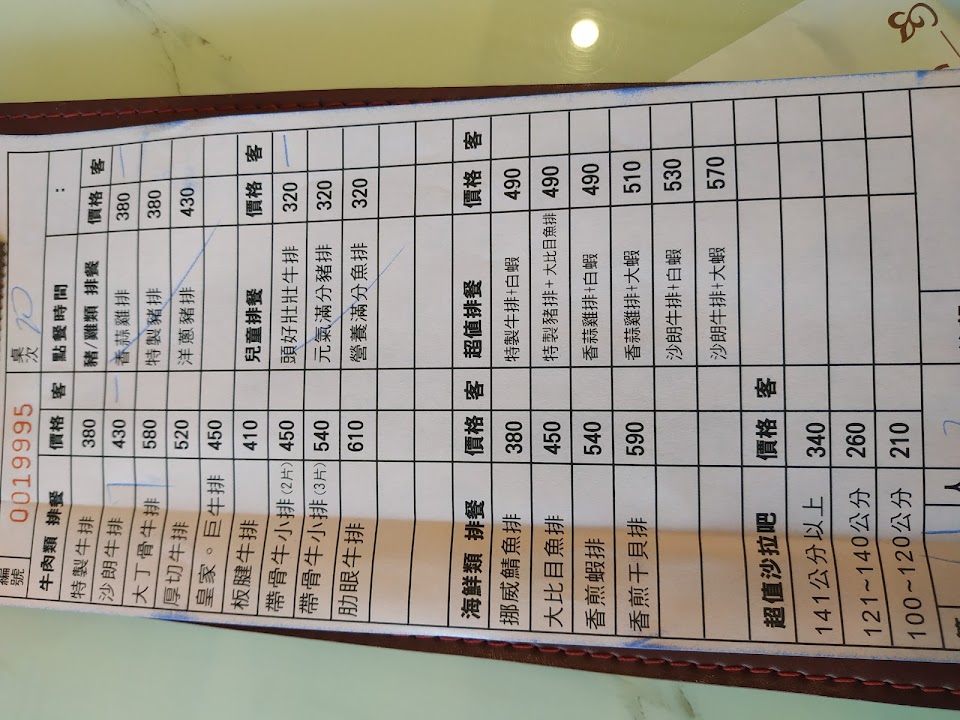 編號 0019995 桌次 20
牛肉類 排餐 價格 客 點餐時間 :
特製牛排 380 豬/雞類 排餐 價格 客
沙朗牛排 430 香蒜雞排 380
大丁骨牛排 580 特製豬排 380
厚切牛排 520 洋蔥豬排 430
皇家。巨牛排 450
板腱牛排 410 兒童排餐 價格 客
帶骨牛小排(2片) 450 頭好壯壯牛排 320
帶骨牛小排(3片) 540 元氣滿分豬排 320
肋眼牛排 610 營養滿分魚排 320
海鮮類 排餐 價格 客 超值排餐 價格 客
挪威鯖魚排 380 特製牛排+白蝦 490
大比目魚排 450 特製豬排+大比目魚排 490
香煎蝦排 540 香蒜雞排+白蝦 490
香煎干貝排 590 香蒜雞排+大蝦 510
沙朗牛排+白蝦 530
沙朗牛排+大蝦 570
超值沙拉吧 價格 客
141公分以上 340
121~140公分 260
100~120公分 210
人